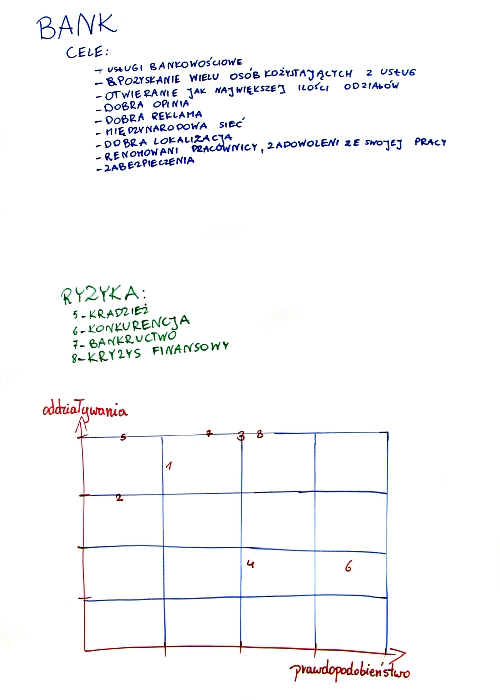 BANK
CELE:
- USŁUGI BANKOWOŚCIOWE
- POZYSKANIE WIELU OSÓB KOŻYSTAJĄCYCH Z USŁUG
- OTWIERANIE JAK NAJWIĘKSZEJ ILOŚCI ODZIAŁÓW
- DOBRA OPINIA
- DOBRA REKLAMA
- MIĘDZYNARODOWA SIEĆ
- DOBRA LOKALIZACJA
- RENOMOWANI PRACOWNICY, ZADOWOLENI ZE SWOJEJ PRACY
- ZABEZPIECZENIA
RYZYKA:
5- KRADZIEŻ
6- KONKURENCJA
7- BANKRUCTWO
8- KRYZYS FINANSOWY
oddziaływania
5 7 3 8
1
2
4 6
prawdopodobieństwo